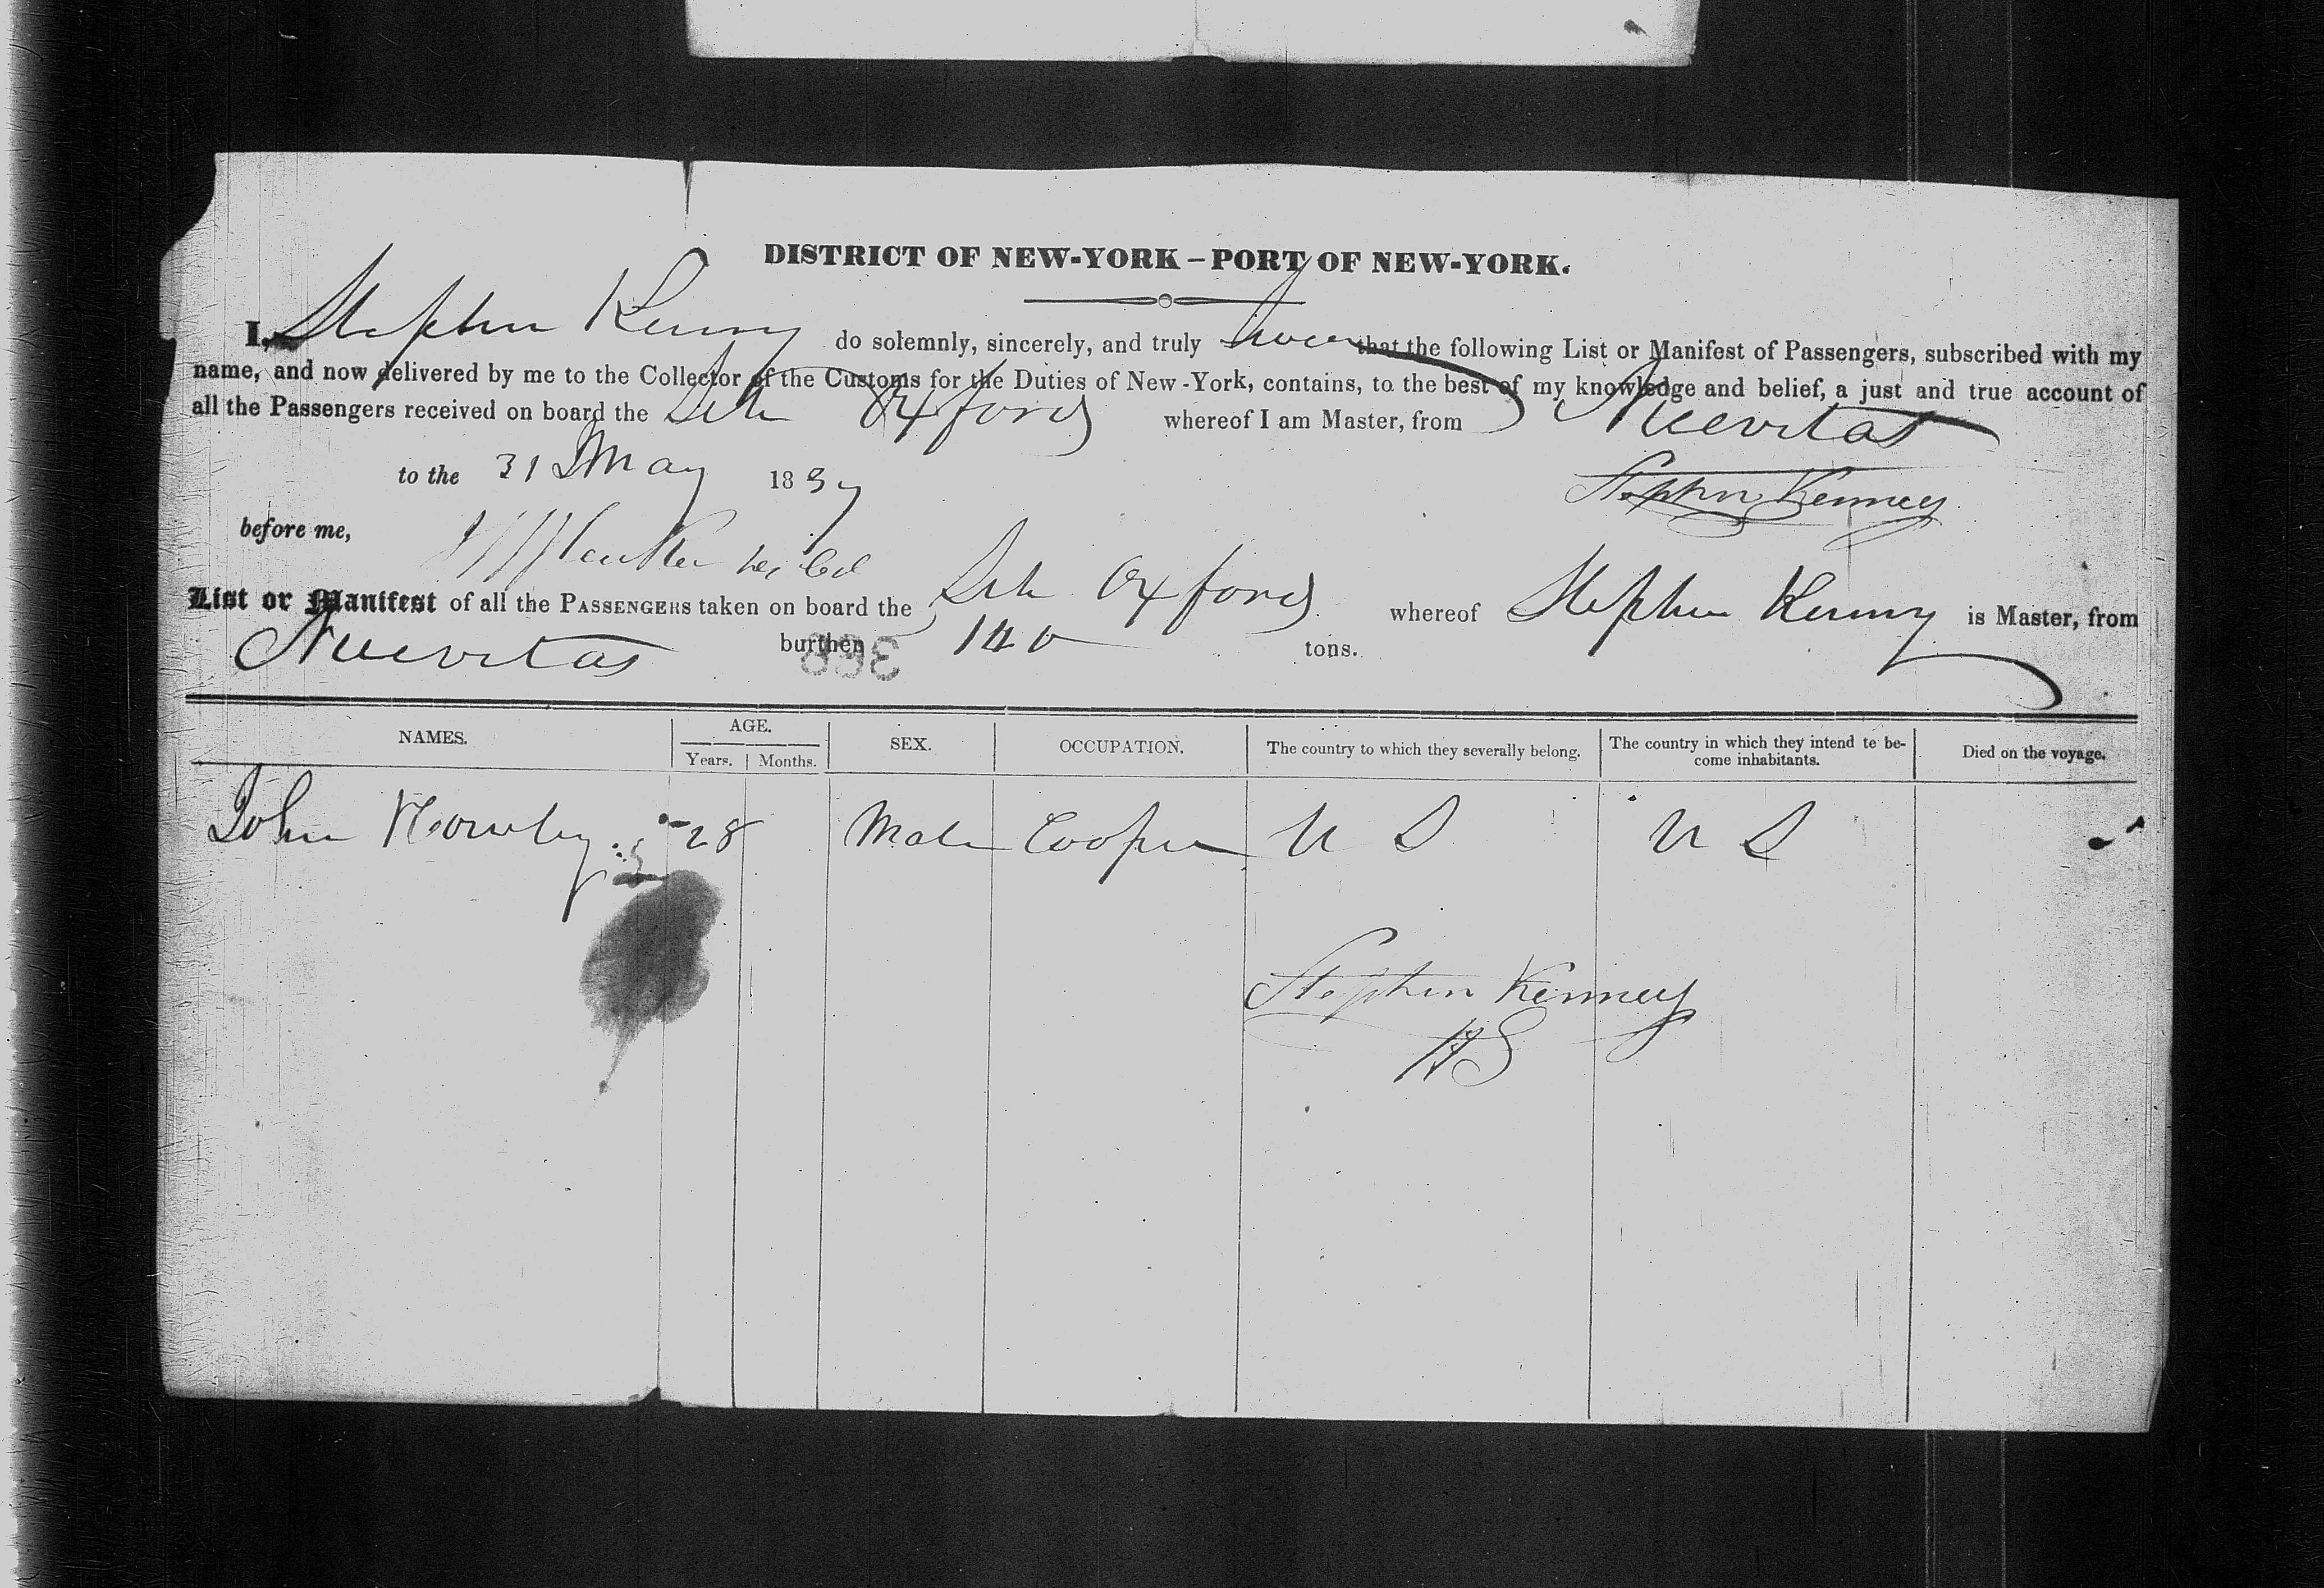 DISTRICT OF NEW-YORK – PORT OF NEW-YORK.
I, Stephen Kenny do solemnly, sincerely, and truly swear that the following List or Manifest of Passengers, subscribed with my
name, and now delivered by me to the Collector of the Customs for the Duties of New-York, contains, to the best of my knowledge and belief, a just and true account of
all the Passengers received on board the Sch Oxford whereof I am Master, from Nuevitas
to the 31 May 1837
Stephen Kenney
before me,
List or Manifest of all the PASSENGERS taken on board the Sch Oxford whereof Stephen Kenny is Master, from
Nuevitas burthen 140 tons.
NAMES. AGE. SEX. OCCUPATION. The country to which they severally belong. The country in which they intend te be-
come inhabitants. Died on the voyage.
Years. Months.
John 28 Male Cooper U S U S
Stephen Kenney